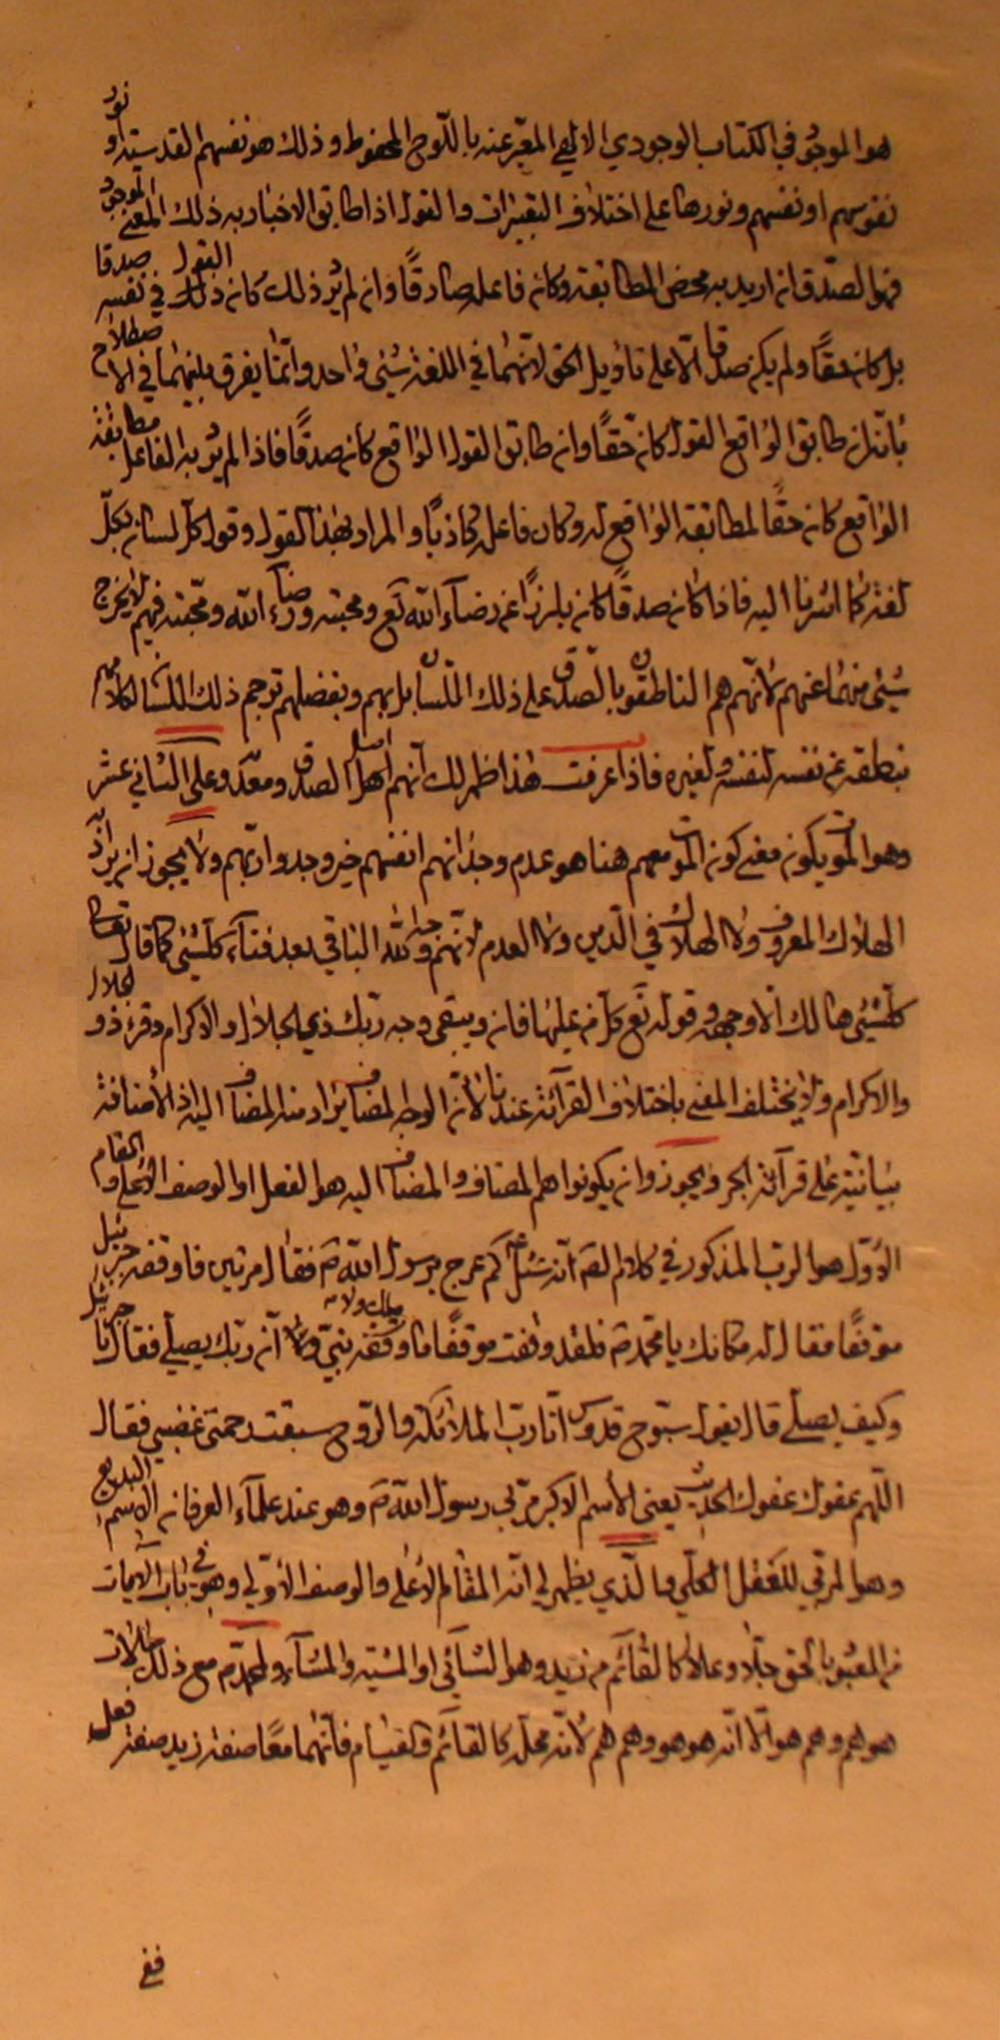 هو الموجود في الكتاب الوجودي الالهي المعبّر عنه باللّوح المحفوظ وذلك هو نفسهم القدسيّة او نور
نفوسهم او نفسهم ونورها على اختلاف التعبيرات والقول اذا طابق الاخبار به ذلك المعنى الموجود
فهو الصّدق ان اريد به محض المطابقة وكان فاعله صادقًا وان لم يُرد ذلك كان ذلك القول في نفسه صدقا
بل كان حقًا ولم يكن صدقا الّا على تأويل الحق لانّهما في اللغة شيئ واحد وانّما يفرق بينهما في الاصطلاح
بانّه ان طابق الواقع القول كان حقًّا وان طابق القول الواقع كان صدقًا فاذا لم يُرد به الفاعل مطابقة
الواقع كان حقًّا لمطابقة الواقع له وكان فاعله كاذبًا والمراد بهذا القول وقول كل لسان بكلّ
لغة كما اشرنا اليه فاذا كان صدقًا كان بارزًا عن رضاء الله تع ومحبته ورضاء الله ومحبّته فيهم لا يخرج
شيئ منهما عنهم لانّهم هم الناطقون بالصّدق على ذلك اللّسان بل بهم وبفضلهم ترجم ذلك اللسان كلامهم
بنطقه عن نفسه لنفسه ولغيره فاذا عرفت هذا ظهر لك انهم اهل الصدق ومعدنه وعلى الثاني عشر
وهو الموت يكون معنى كون الموت معهم هنا هو عدم وجدانهم انفسهم حين وجدوا ربّهم ولا يجوز ان يراد
الهلاك المعروف ولا الهلاك في الدّين ولا العدم لانّهم وجه الله الباقي بعد فناء كلّشيئ كما قال تعالى
كلّشيئ هالك الّا وجهه وقوله تع كل من عليها فان ويبقى وجه ربّك ذي الجلال والاكرام وقرئ ذو الجلال
والاكرام ولا يختلف المعنى باختلاف القرآئة عندنا لانّ الوجه المضاف يراد منه المضاف اليه اذ الاضافة
بيانيّة على قرآئة الجر ويجوز ان يكونوا هم المضاف والمضاف اليه هو الفعل او الوصف الاعلى والمقام
الاوّل هو الرب المذكور في كلام الصّ انّه سُئل كم عرج برسول الله ص فقال مرتين فاوقفه جبرئيل
موقفًا فقال له مكانك يا محمّد ص فلقد وقفت موقفًا ما وقفه ملك ولا نبيّ ولا انّ ربّك يصلّي فقال يا جبرئيل
وكيف يصلّي قال يقول سبّوح قدّوس انا ربّ الملائكة والرّوح سبقت رحمتي غضبي فقال
اللّهم عفوك عفوك الحديث يعني الاسم الاكبر مربّي رسول الله ص وهو عند علماء العرفان الاسم البديع
وهو المربّي للعقل الكلّي والّذي يظهر لي انّه المقام الاعلى والوصف الاوّلي وهو في باب الآيات
من المعبود بالحق جلّ وعلا كالقائم من زيد وهو الشائي او المشيّة والمشاء ومحمّد ص مع ذلك
هو هم وهم هو الّا انّه هو هو وهم هم لانّه محلّه كالقائم والقيام فانّهما معًا صفة زيد صفة فعل